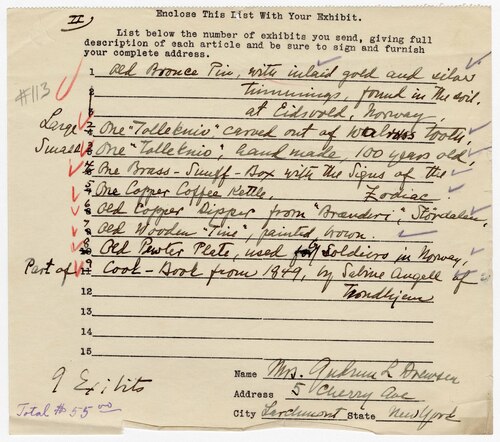 II
Enclose This List With Your Exhibit.
List below the number of exhibits you send, giving full
description of each article and be sure to sign and furnish
your complete address.
#113
1 Old Bronce Pin, with inlaid gold and silver
trimmings, found in the soil.
at Eidsvold, Norway,
Large 2 One "Tolleknio" carved out of Walruss Tooth,
Small 3 One "Tolleknio", hand made, 100 years old,
4 One Brass-Snuff-Box with the Signs of the
5 One Copper Coffee Kettle, Zodiac.
6 Old Copper Dipper from "Branderi", Stördalen,
7 Old Wooden "Tine", painted brown.
8 Old Pewter Plate, used by Soldiers in Norway,
Part of 9 Cook-Book from 1849, by Sabine Angell of
12 Trondhjem
13
14
15
9 Exibits
Total # 55 00
Name Mrs. Gudrun L Drewsen
Address 5 Cherry Ave
City Larchmont State New York